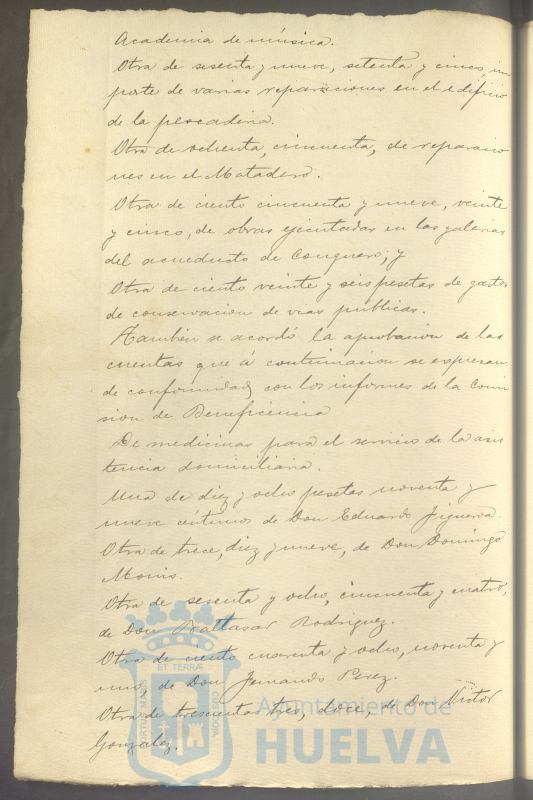 Academia de música.
Otra de sesenta y nueve, setenta y cinco, im
porte de varias reparaciones en el edificio
de la pescaderia.
Otra de ochenta, cincuenta, de reparacio
nes en el Matadero.
Otra de ciento cincuenta y nueve, veinte
y cinco, de obras ejecutadas en las galerias
del acueducto de Conquero; y
Otra de ciento veinte y seis pesetas de gastos
de conservacion de vias públicas.
Tambien se acordó la aprobacion de las
cuentas que á continuacion se expresan
de conformidad con los informes de la Comi
sion de Beneficencia
De medicinas para el servicio de la asis
tencia domiciliaria.
Una de diez y ocho pesetas noventa y
nueve céntimos de Don Eduardo Figueroa.
Otra de trece, diez y nueve, de Don Domingo
Otra de sesenta y ocho, cincuenta y cuatro,
de Don Baltasar Rodriguez.
Otra de ciento cuarenta y ocho, noventa y
uno, de Don Fernando Perez.
Otra de trescientas tres, doce, de Don Victor
Gonzalez.
ET TERRÆ
PORTUS MARIS
CUSTODIA
Ayuntamiento de
HUELVA